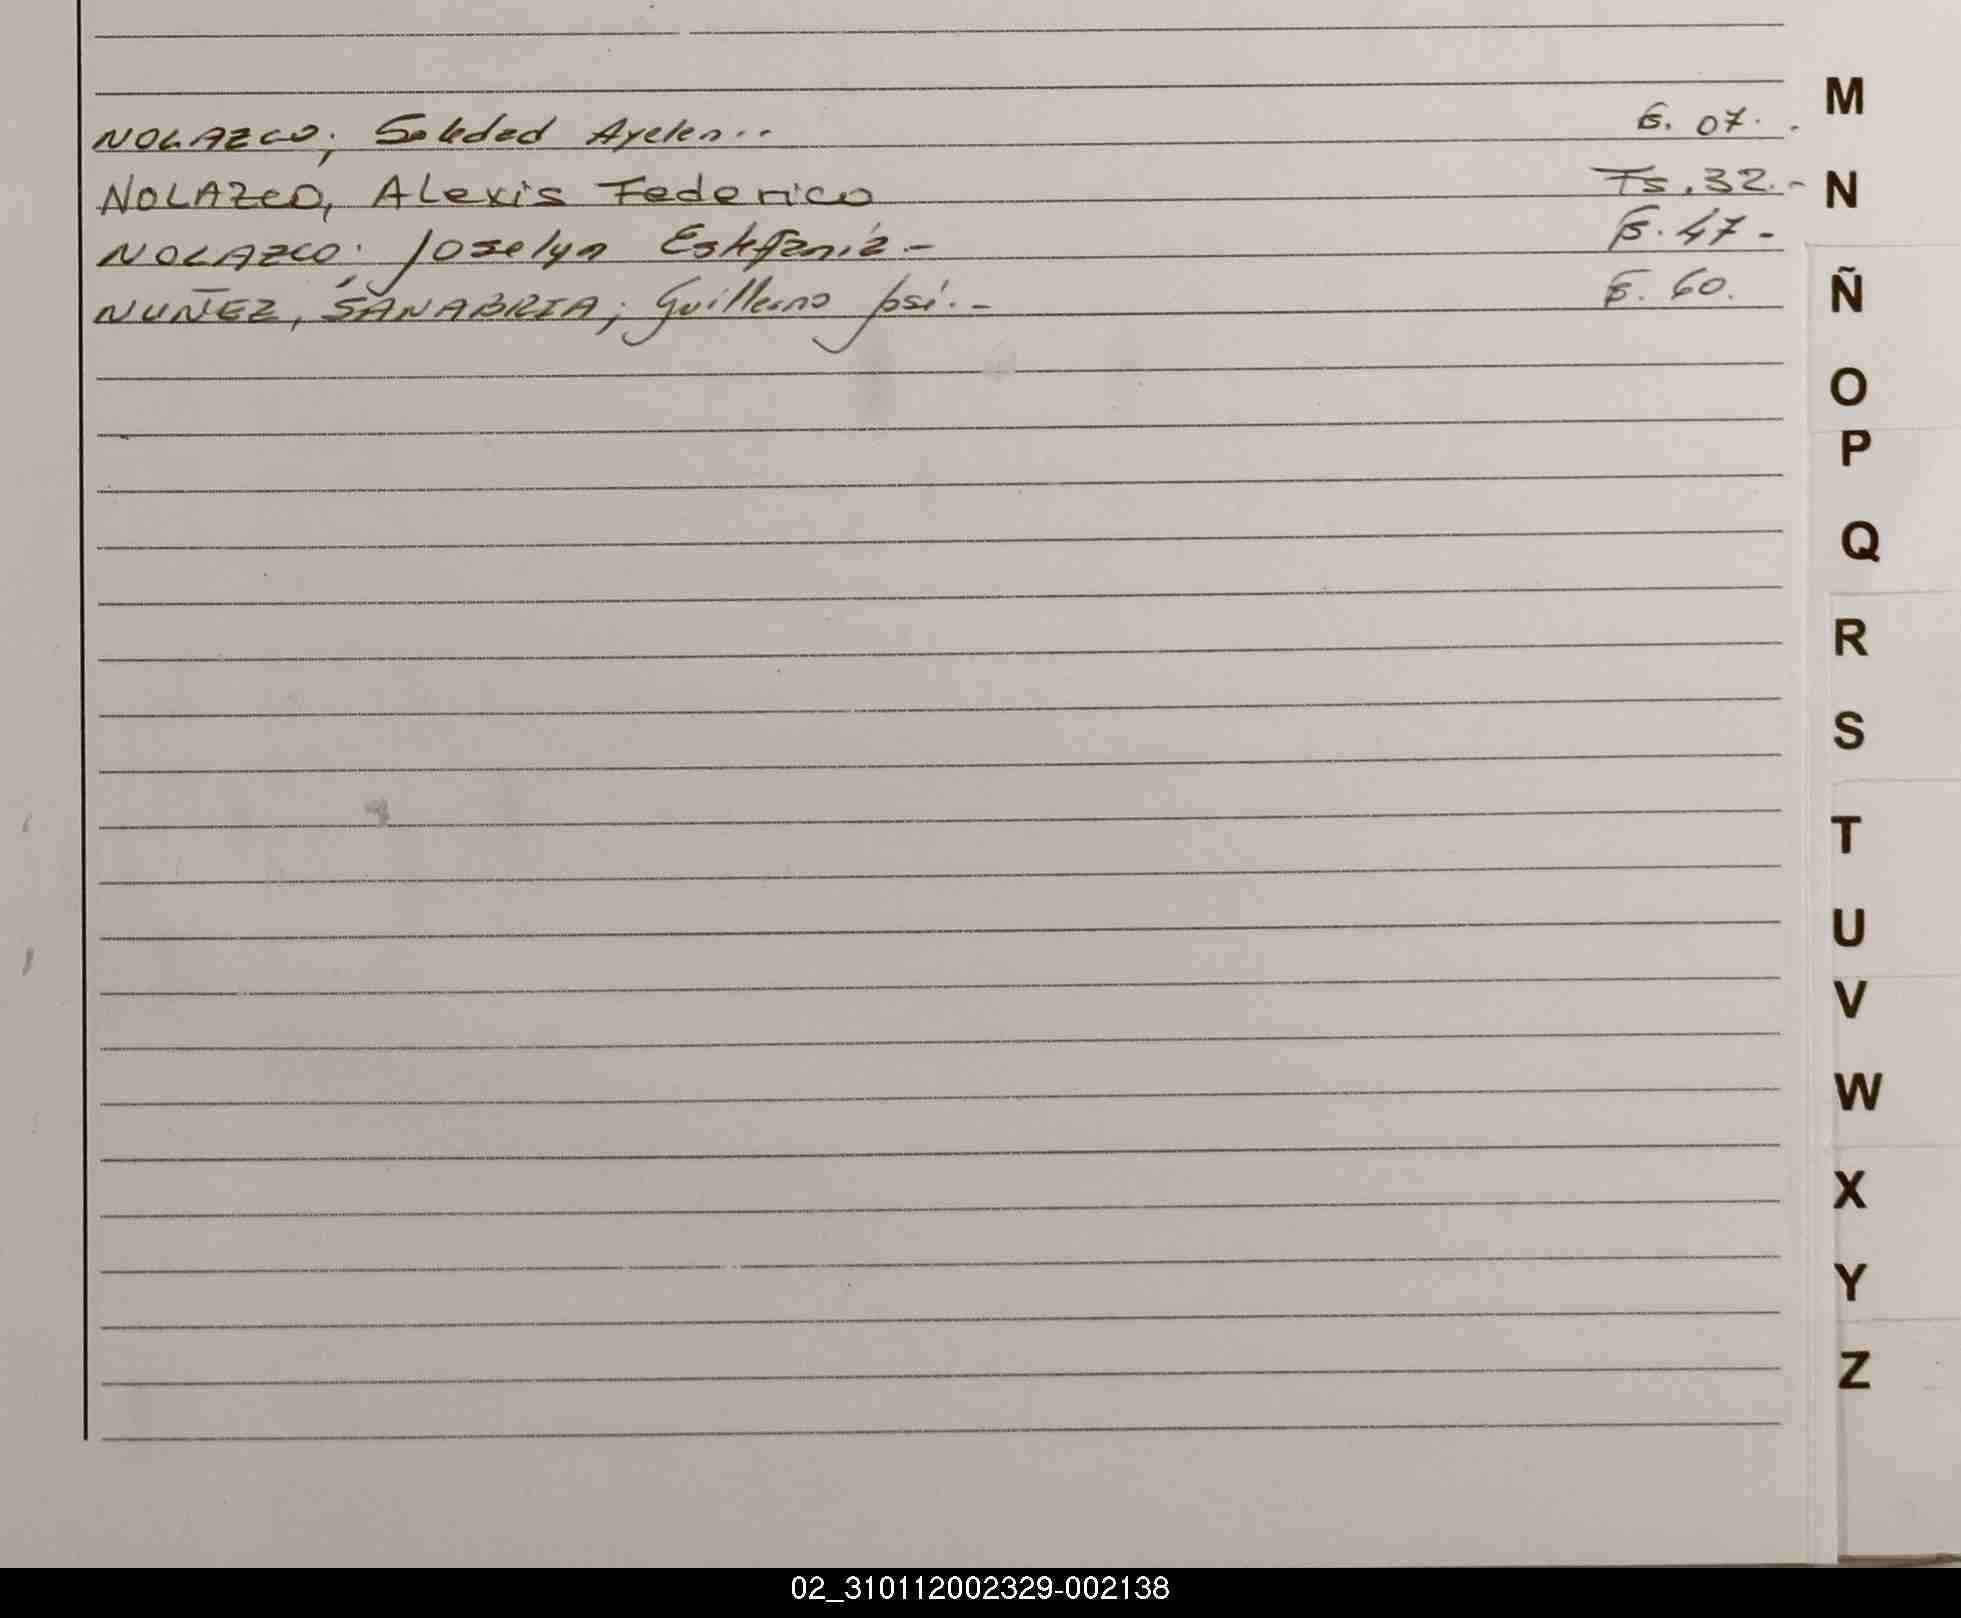 NOLAZCO; Soledad Ayelen.. Fs. 07.-
NOLAZCO, Alexis Federico Fs. 32.-
NOLAZCO; Joselyn Estefanía - Fs. 47 -
NUÑEZ, SANABRIA; Guillermo José.- Fs. 60.
M
N
Ñ
O
P
Q
R
S
T
U
V
W
X
Y
Z
02_310112002329-002138